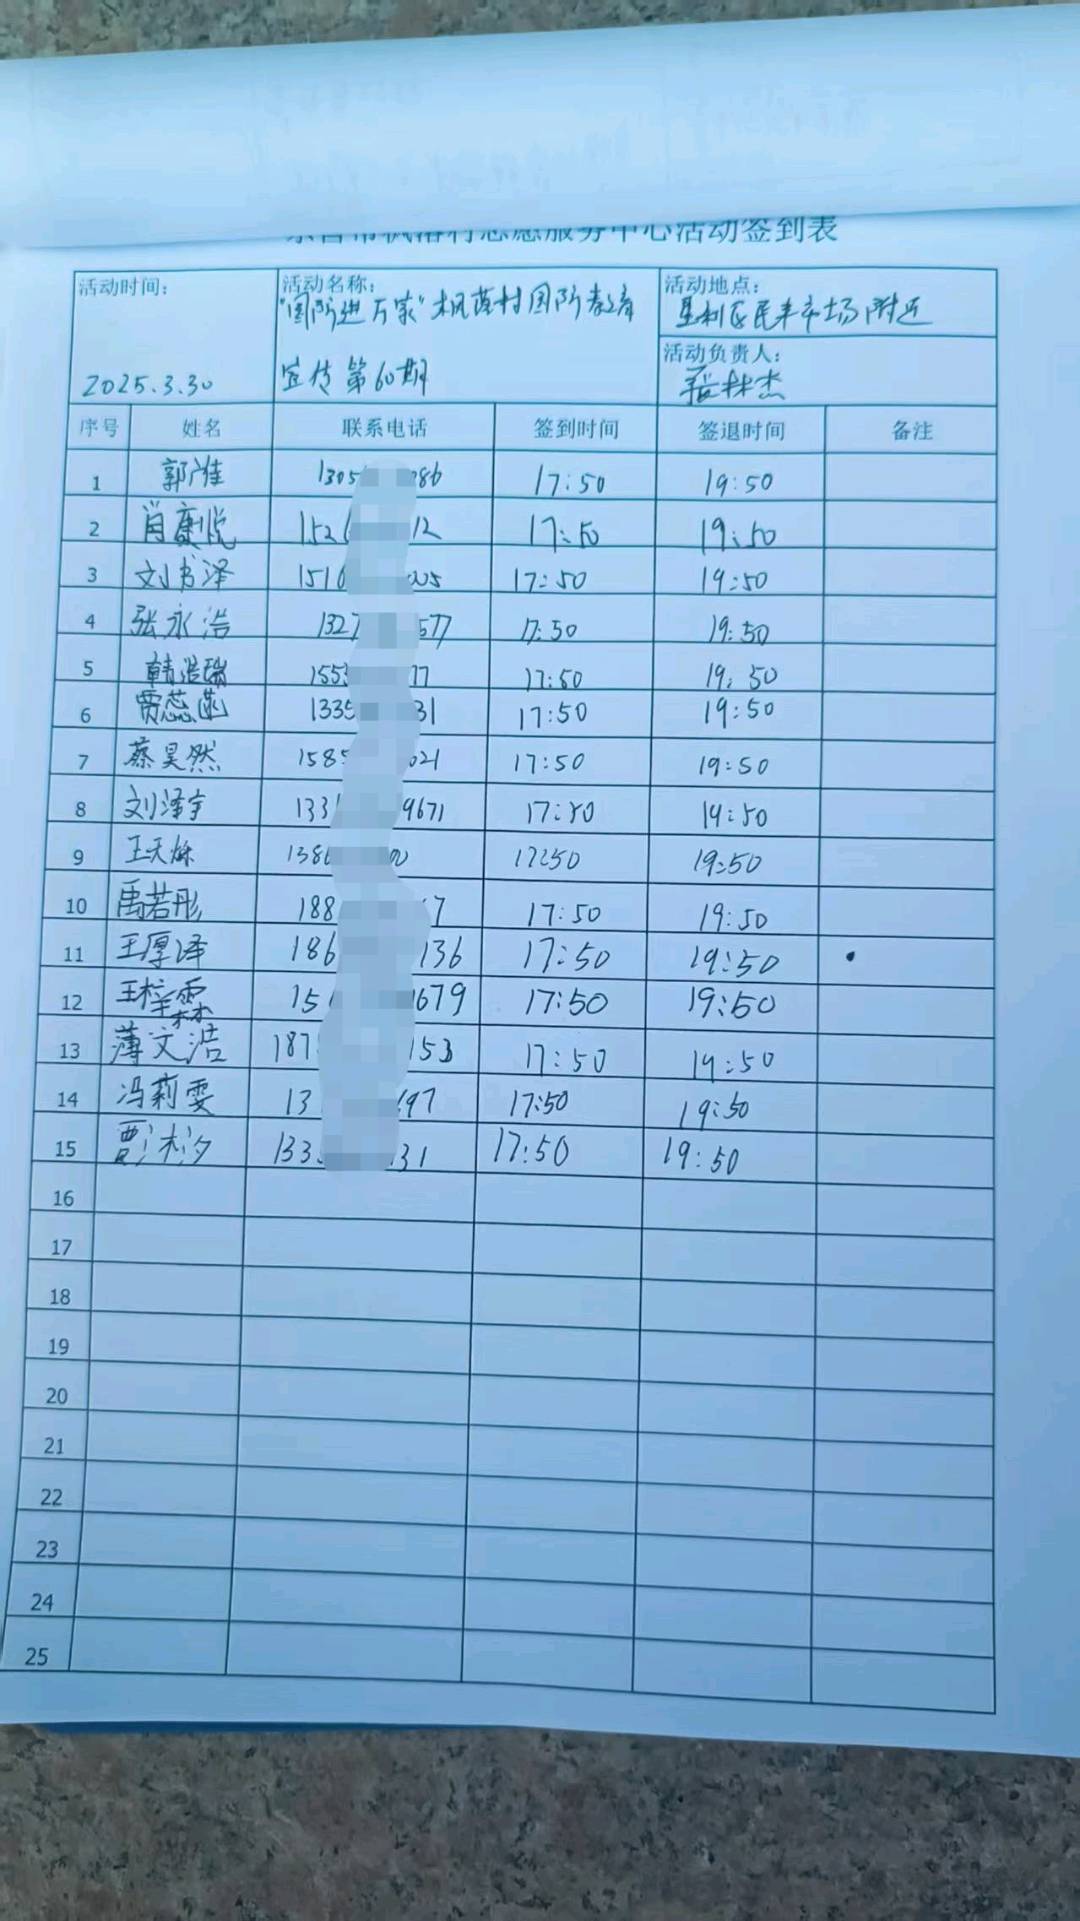 志愿服务中心活动签到表
活动时间： 活动名称： 活动地点：
"国防进万家"枫落村国防教育 垦利区民丰市场附近
活动负责人：
2025.3.30 宣传第60期 张林杰
序号 姓名 联系电话 签到时间 签退时间 备注
1 郭佳 1305 286 17:50 19:50
2 肖康悦 152 12 17:50 19:50
3 刘书泽 1510 005 17:50 19:50
4 张永浩 1327 577 17:50 19:50
5 韩浩瑞 1553 77 17:50 19:50
6 贾蕊菡 1335 31 17:50 19:50
7 蔡昊然 1585 021 17:50 19:50
8 刘泽宇 133 9671 17:50 19:50
9 王天烁 1386 17:50 19:50
10 禹若彤 188 7 17:50 19:50
11 王厚泽 186 136 17:50 19:50
12 王梓霖 15 679 17:50 19:50
13 薄文浩 187 153 17:50 19:50
14 冯莉雯 13 697 17:50 19:50
15 贾彬汐 133 31 17:50 19:50
16
17
18
19
20
21
22
23
24
25